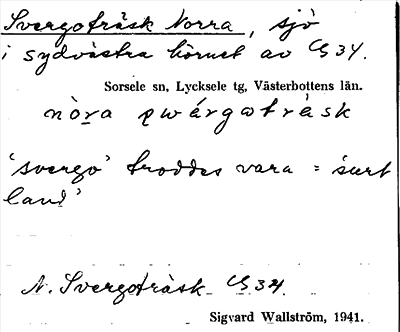 Svergoträsk Norra, sjö
i sydvästra hörnet av G 34.
Sorsele sn, Lycksele tg, Västerbottens län.
'svergo' troddes vara = 'surt
land'
N. Svergoträsk G 34.
Sigvard Wallström, 1941.